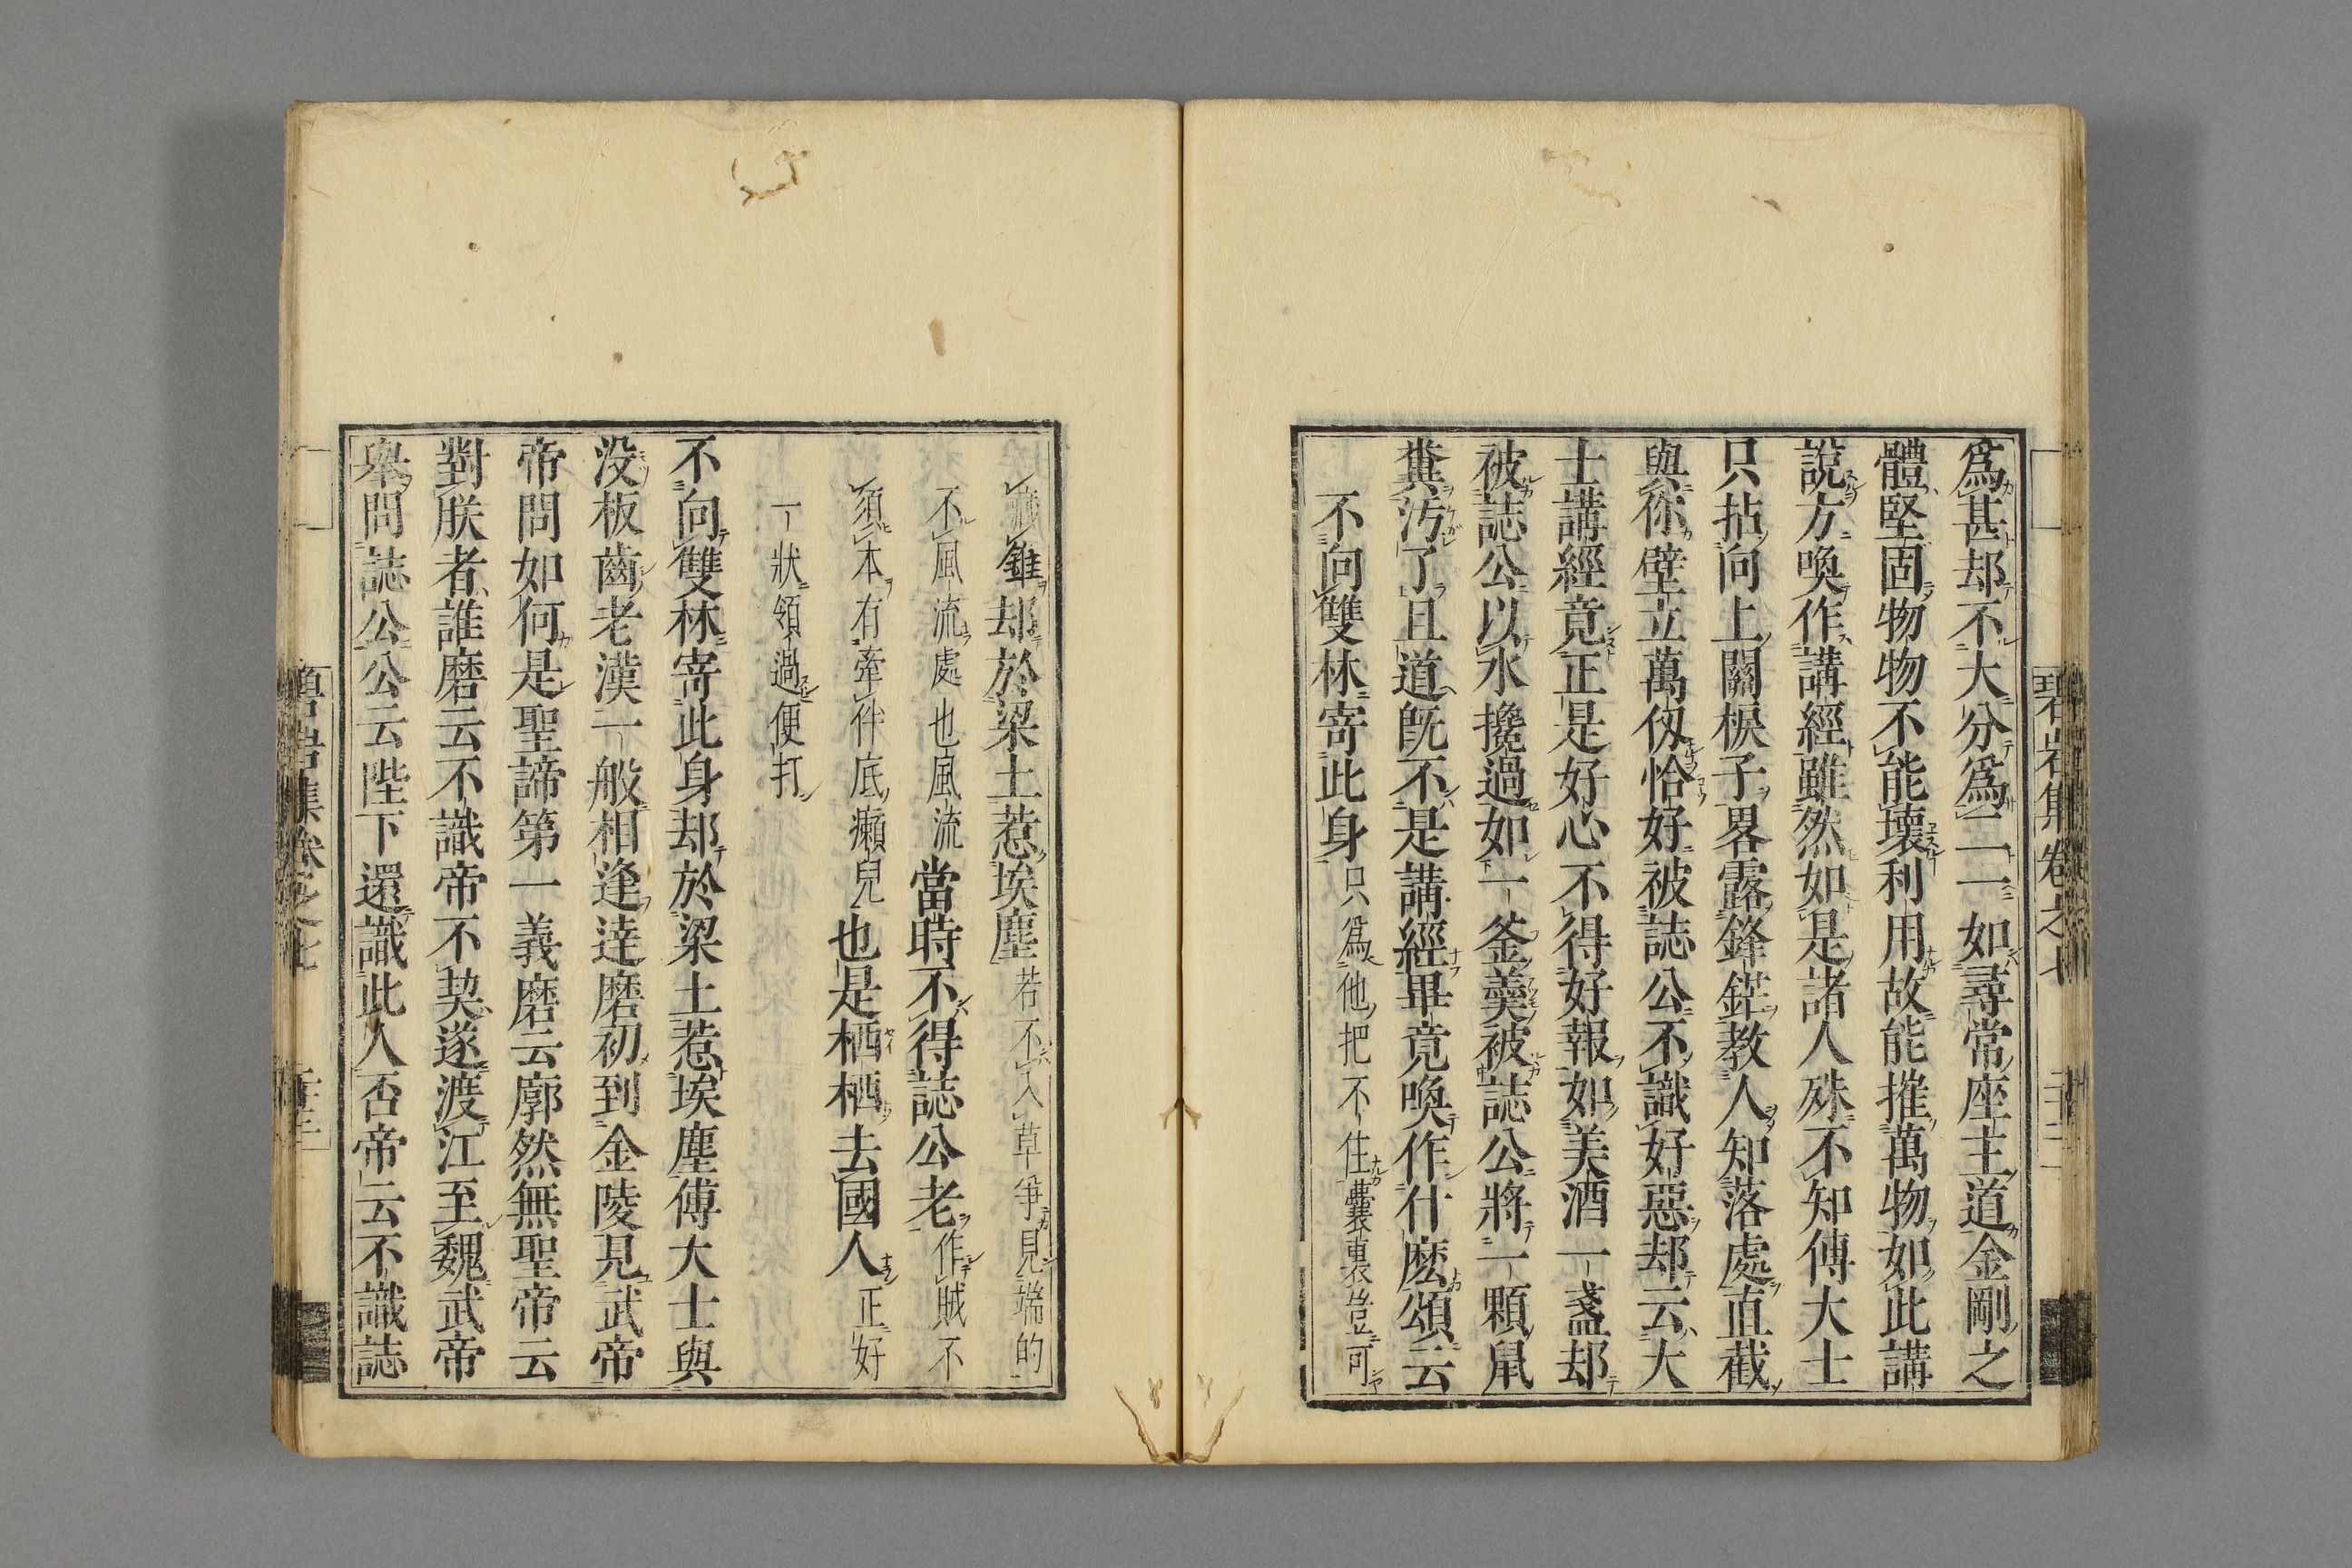 碧岩集卷之七
爲甚却不大分爲二一如尋常座主道金剛之
體堅固物物不能壞利用故能摧萬物如此講
說方喚作講經雖然如是諸人殊不知傅大士
只拈向上關棙子畧露鋒鋩教人知落處直截
與你壁立萬仭恰好被誌公不識好惡却云大
士講經竟正是好心不得好報如美酒一盞却
被誌公以水攙過如一釜羮被誌公將一顆鼠
糞汚了且道既不是講經畢竟喚作什麽頌云
不向雙林寄此身只爲他把不住囊裏豈可
錐却於梁土惹埃塵若不入草爭見端的
不風流處也風流當時不得誌公老作賊不
須本有牽伴底癩兒也是栖栖去國人正好
一狀領過便打
不向雙林寄此身却於梁土惹埃塵傅大士與
没板齒老漢一般相逢達磨初到金陵見武帝
帝問如何是聖諦第一義磨云廓然無聖帝云
對朕者誰磨云不識帝不契遂渡江至魏武帝
舉問誌公公云陛下還識此人否帝云不識誌
碧岩集卷之七